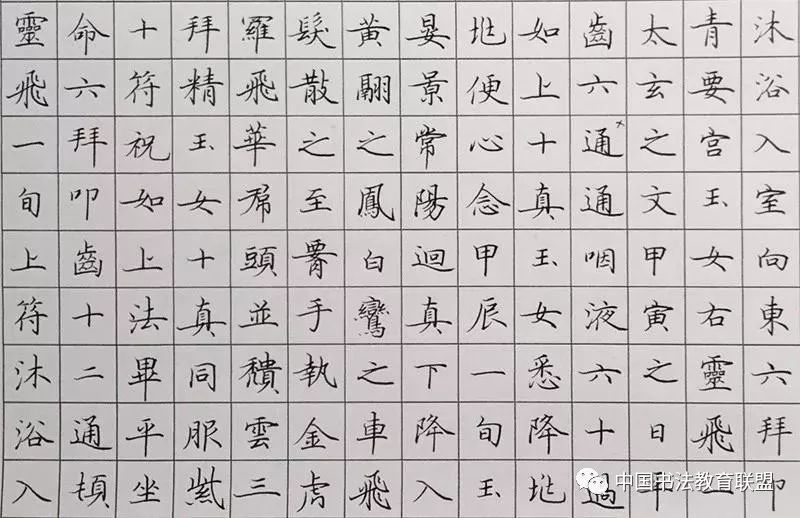 沐浴入室向東六拜叩
青要宫玉女右靈飛
太玄之文甲寅之日甲
齒六通通咽液六十過
如上六十真玉女悉降兆
兆便心念甲辰一旬玉
晏景常陽迴真下降入
黃翮之鳳白鸞之車飛
髮散之至腰手執金虎
羅飛華帬頭並頹雲三
拜精玉女十真同服紫
十符祝如上法畢平坐
命六拜叩齒十二通頓
靈飛一旬上符沐浴入
中国书法教育联盟